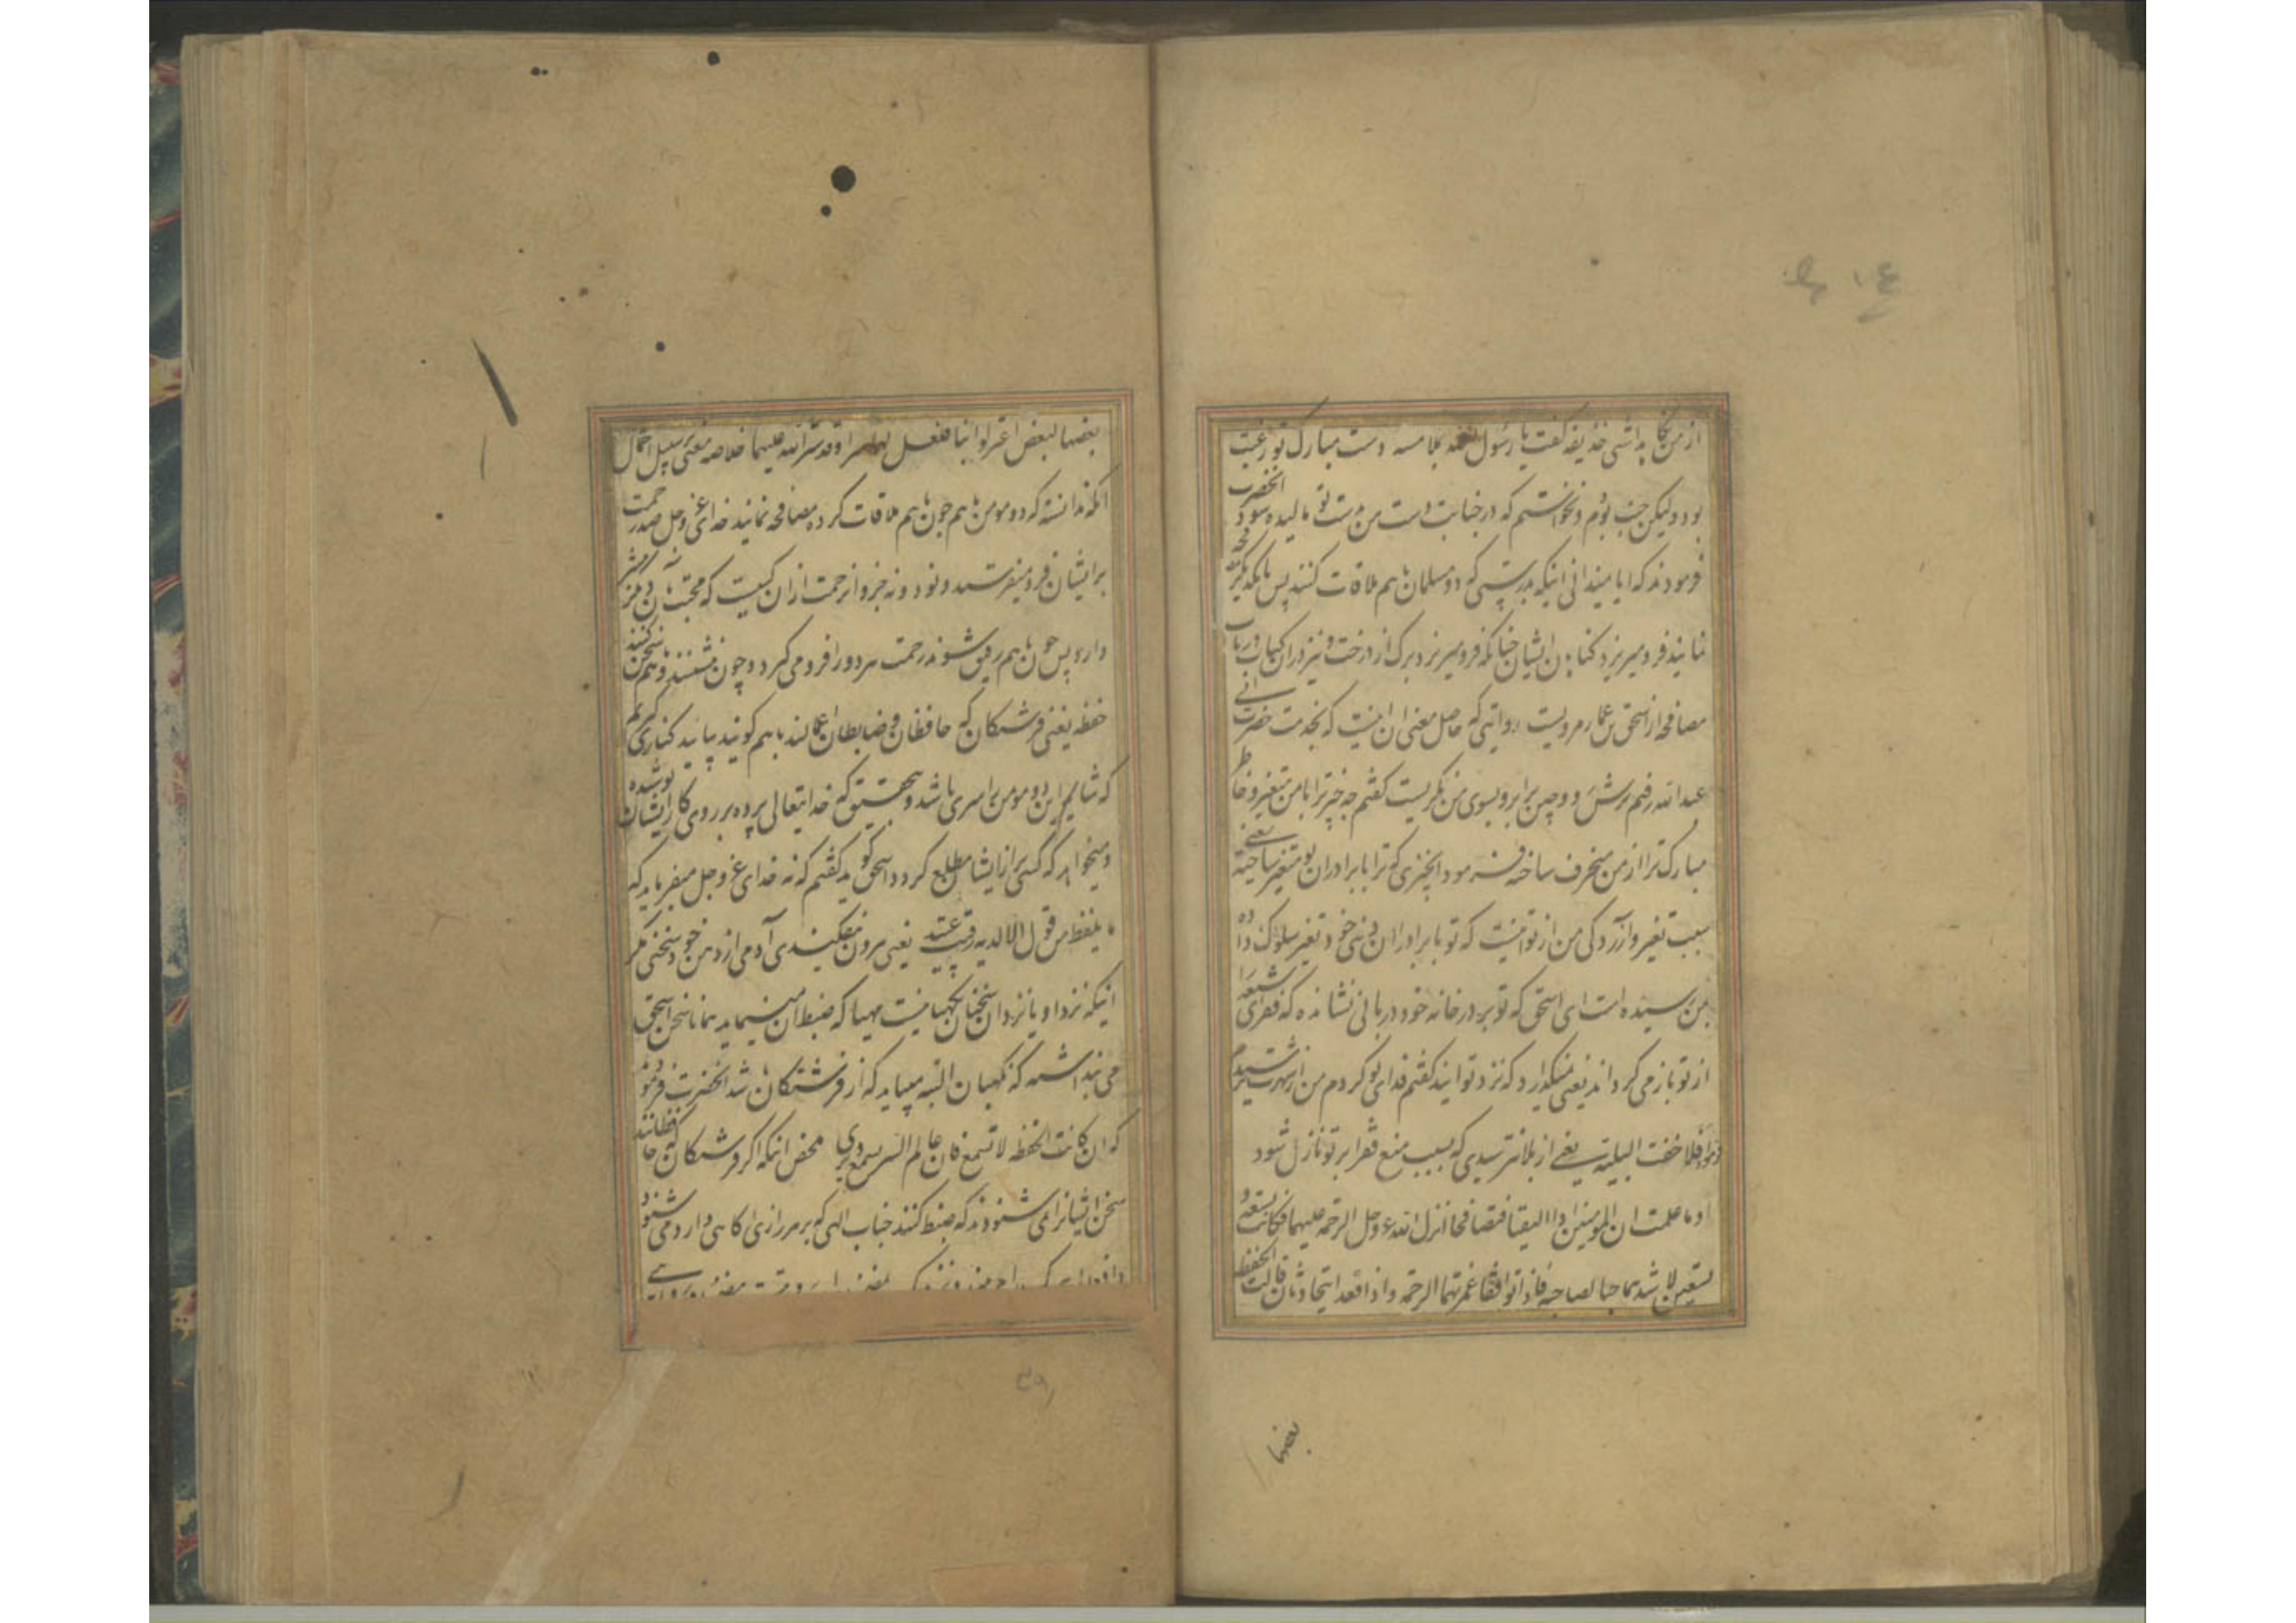 از من نگاه داشتی حذیفه گفت یا رسول الله بملامسه دست مبارک تو رغبت
بود و لیکن جنب بودم و نخواستم که در جنابت دست من بدست تو مالیده شود انحضرت
فرمودند که ایا میدانی اینکه بدرستی که دو مسلمان باهم ملاقات کنند پس با یکدیگر مصافحه
نمایند فرو میریزد کناهان ایشان چنانکه فرو میریزد برک از درخت و نیز در ان کتاب در باب
مصافحه از اسحق بن عمار مرویست روایتی که حاصل معنی ان اینست که بخدمت حضرت ابی
عبدالله رفتم ترش و چین بر ابرو بسوی من نکریست کفتم چه چیز ترا با من متغیر و خاطر
مبارک ترا از من منحرف ساخته فرمود انچیزی که ترا با برادران تو متغیر ساخته یعنی
سبب تغیر و آزردکی من از تو اینست که تو با برادران دینی خود تغیر سلوک داده
بمن رسیده است ای اسحق که تو بر در خانه خود دربانی نشانده که فقرای شیعه را
از تو باز می کرداند یعنی نمیکذارد که نزد تو ایند کفتم فدای تو کردم من از شهرت ترسیدم
فرمود افلا خفت البلیة یعنی از بلا نترسیدی که بسبب منع فقرا بر تو نازل شود
او ما علمت ان المومنین اذا التقیا فتصافحا انزل الله عز و جل الرحمة علیهما فکانت تسعة و
تسعین لاشدهما حبا لصاحبه فاذا توافقا غمرتهما الرحمة و اذا قعدا یتحادثان قالت الحفظة
بعضها
بعضها لبعض اعتزلوا بنا فلعل لهما سرا و قد ستر الله علیهما خلاصه معنی بر سبیل اجمال
انکه ندانسته که دو مومن باهم چون باهم ملاقات کرده مصافحه نمایند خدای عز و جل صد رحمت
بر ایشان فرو میفرستد و نود و نه جزو از رحمت از ان کسیست که محبت ان دیکر بیشتر
دارد پس چون باهم رفیق شوند رحمت هر دو را فرو می کیرد و چون نشینند و باهم سخن کنند
حفظه یعنی فرشتکان که حافظان و ضابطان اعمالند باهم کویند بیایید کناری کیریم
که شاید این دو مومن را سری باشد و بتحقیق که خدایتعالی پرده بر روی کار ایشان پوشیده
و نمیخواهد که کسی از ایشان مطلع کردد اسحق کوید کفتم که نه خدای عز و جل میفرماید که
ما یلفظ من قول الا لدیه رقیب عتید یعنی بیرون نمی افکند آدمی از دهن خود سخنی مکر
اینکه نزد او یا نزد ان سخن نکهبانیست مهیا که ضبط ان مینماید همانا سخن اسحق
می پنداشته که نکهبان البته میباید که از فرشتکان باشد انحضرت فرمودند
که ان کانت الحفظة لا تسمع فان عالم السر یسمع و یری محض اینکه اکر فرشتکان که حافظانند
سخن ایشانرا نمی شنوند که ضبط کنند جناب الهی که بر هر رازی اکاهی دارد می شنود